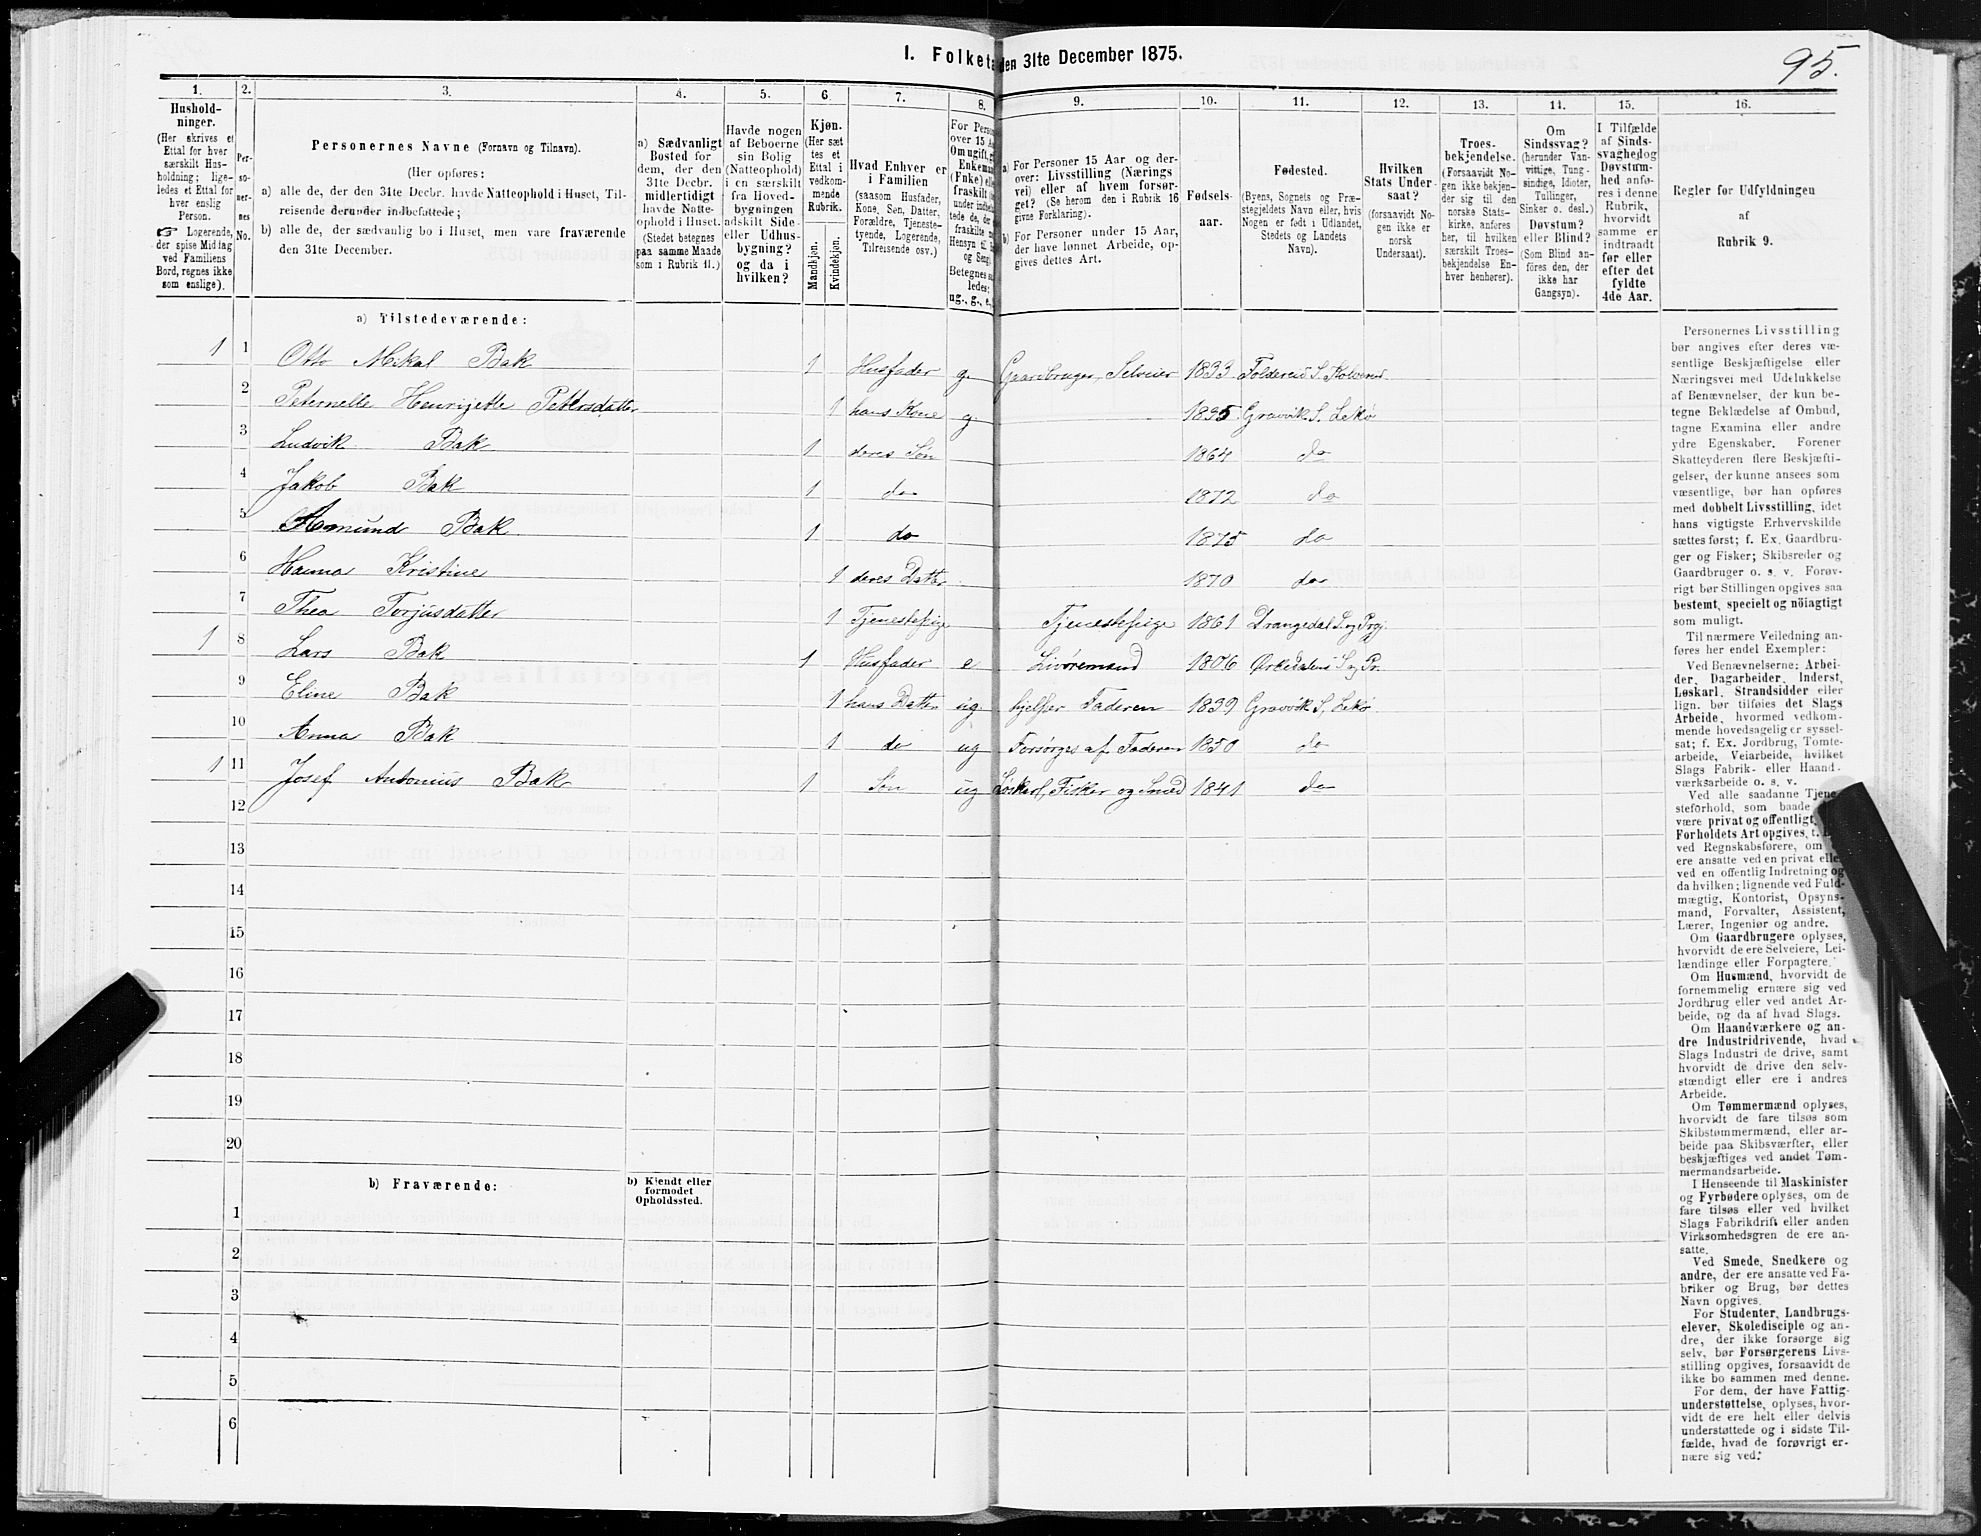 95.
I. Folketa
den 31te December 1875.
1. 2. 3. 4. 5. 6. 7. 8. 9. 10. 11. 12. 13. 14. 15. 16.
Hushold-
ninger.
(Her skrives et
Ettal for hver
særskilt Hus-
holdning; lige-
ledes et Ettal for
hver enslig
Person.
☞ Logerende,
der spise Middag
ved Familiens
Bord, regnes ikke
som enslige).
Per-
so-
ner-
nes
No.
Personernes Navne (Fornavn og Tilnavn).
(Her opføres:
a) alle de, der den 31te Decbr. havde Natteophold i Huset, Til-
reisende derunder indbefattede;
b) alle de, der sædvanlig bo i Huset, men vare fraværende
den 31te December.
a) Sædvanligt
Bosted for
dem, der den
31te Decbr.
midlertidigt
havde Natte-
ophold i Huset.
(Stedet betegnes
paa samme Maade
som i Rubrik 11.)
Havde nogen
af Beboerne
sin Bolig
(Natteophold)
i en særskilt
fra Hoved-
bygningen
adskilt Side-
eller Udhus-
bygning?
og da i
hvilken?
Kjøn.
(Her sæt
tes et
Ettal i
vedkom-
mende
Rubrik.
Mandkjøn.
Kvindekjøn.
Hvad Enhver er
i Familien
(saasom Husfader,
Kone, Søn, Datter,
Forældre, Tjeneste-
tyende, Logerende,
Tilreisende osv.)
For Person
over 15 Aa
Om ugift, g
Enkema
(Enke) ell
fraskilt (
under indb
tede de, de
fraskilte
Hensyn til
og Seng
Betegnes sa
ledes:
ug., g., e.,
a) For Personer 15 Aar og der-
over: Livsstilling (Nærings
vei) eller af hvem forsør-
get? (Se herom den i Rubrik 16
givne Forklaring).
b) For Personer under 15 Aar,
der have lønnet Arbeide, op-
gives dettes Art.
Fødsels-
aar.
Fødested.
(Byens, Sognets og Præ-
stegjeldets Navn eller, hvis
Nogen er født i Udlandet,
Stedets og Landets
Navn).
Hvilken
Stats Under-
saat?
(forsaavidt No-
gen ikke er
norsk
Undersaat).
Troes-
bekjendelse.
(Forsaavidt No-
gen ikke bekjen-
der sig til den
norske Stats-
kirke, anføres
her, til hvilken
særskilt Troes-
bekjendelse En-
hver henhører).
Om
Sindssvag?
(herunder Van-
vittige, Tung-
sindige, Idioter,
Tullinger,
Sinker o. desl.)
Døvstum?
eller Blind?
(Som Blind an-
føres den, der
ikke har
Gangsyn).
I Tilfælde
af Sinds-
svaghed og
Døvstum-
hed anfø-
res i denne
Rubrik,
hvorvidt
samme er
indtraadt
før eller
efter det
fyldte
4de Aar.
Regler for Udfyldningen
af
Rubrik 9.
a) Tilstedeværende:
1 1 Otto Mikal Bak 1 Husfader g. Gaardbruger, Selveier 1833 Foldereid S. Kolvereid
2 Peternelle Henrijette Petersdatter 1 hans Kone g. 1835 Gravvik S. Lekø
3 Ludvik Bak 1 deres Søn 1864 do
4 Jakob Bak 1 do 1872 do
5 Amund Bak 1 do 1875 do
6 Hanna Kristine 1 deres Datter 1870 do
7 Thea Torjusdatter 1 Tjenestepige Tjenestepige 1861 Drangedal S. og Prgj.
1 8 Lars Bak 1 Husfader e Livøremand 1806 Ørkedalens S og Pr.
9 Eline Bak 1 hans Datter ug. hjelper Faderen 1839 Gravvik S. Lekø
10 Anna Bak 1 do ug Forsørges af Faderen 1850 do
1 11 Josef Antonius Bak 1 Søn ug Løskarl, Fisker og Smed 1841 do
12
13
14
15
16
17
18
19
20
b) Fraværende:
b) Kjendt eller
formodet
Opholdssted.
1
2
3
4
5
6
Personernes Livsstilling
bør angives efter deres væ-
sentlige Beskjæftigelse eller
Næringsvei med Udelukkelse
af Benævnelser, der kun be-
tegne Beklædelse af Ombud,
tagne Examina eller andre
ydre Egenskaber. Forener
Skatteyderen flere Beskjæfti-
gelser, der kunne ansees som
væsentlige, bør han opføres
med dobbelt Livsstilling, idet
hans vigtigste Erhvervskilde
sættes først; f. Ex. Gaardbru-
ger og Fisker; Skibsreder og
Gaardbruger o. s. v. Forøv-
rigt bør Stillingen opgives saa
bestemt, specielt og nöiagtigt
som muligt.
Til nærmere Veiledning an-
føres her endel Exempler:
Ved Benævnelserne: Arbei-
der, Dagarbeider, Inderst,
Løskarl, Strandsidder eller
lign. bør tilføies det Slags
Arbeide, hvormed vedkom-
mende hovedsagelig er syssel-
sat; f. Ex. Jordbrug, Tomte-
arbeide, Veiarbeide, hvilket
Slags Fabrik- eller Haand-
værksarbeide o. s. v.
Ved alle saadanne Tjene-
steforhold, som baade
være privat og offentligt,
Forholdets Art opgives, t.
ved Regnskabsførere, om
ere ansatte ved en privat elle
ved en offentlig Indretning og
da hvilken; lignende ved Fuld-
mægtig, Kontorist, Opsyns-
mand, Forvalter, Assistent,
Lærer, Ingeniør og andre.
Om Gaardbrugere oplyses,
hvorvidt de ere Selveiere, Lei-
lændinge eller Forpagtere.
Om Husmænd, hvorvidt de
fornemmelig ernære sig ved
Jordbrug eller ved andet Ar-
beide, og da af hvad Slags.
Om Haandværkere og an-
dre Industridrivende, hvad
Slags Industri de drive, samt
hvorvidt de drive den selv-
stændigt eller ere i andres
Arbeide.
Om Tømmermænd oplyses,
hvorvidt de fare tilsøs som
Skibstømmermænd, eller ar-
beide paa Skibsværfter, eller
beskjæftiges ved andet Tøm-
mermandsarbeide.
I Henseende til Maskinister
og Fyrbødere oplyses, om de
fare tilsøs eller ved hvilket
Slags Fabrikdrift eller anden
Virksomhedsgren de ere an-
satte.
Ved Smede, Snedkere og
andre, der ere ansatte ved Fa-
briker og Brug, bør dettes
Navn opgives.
For Studenter, Landbrugs-
elever, Skoledisciple og an-
dre, der ikke forsørge sig
selv, bør Forsørgerens Livs-
stilling opgives, forsaavidt de
ikke bo sammen med denne.
For dem, der have Fattig-
understøttelse, oplyses, hvor-
vidt de ere helt eller delvis
understøttede og i sidste Til-
fælde, hvad de forøvrigt er-
nære sig ved.